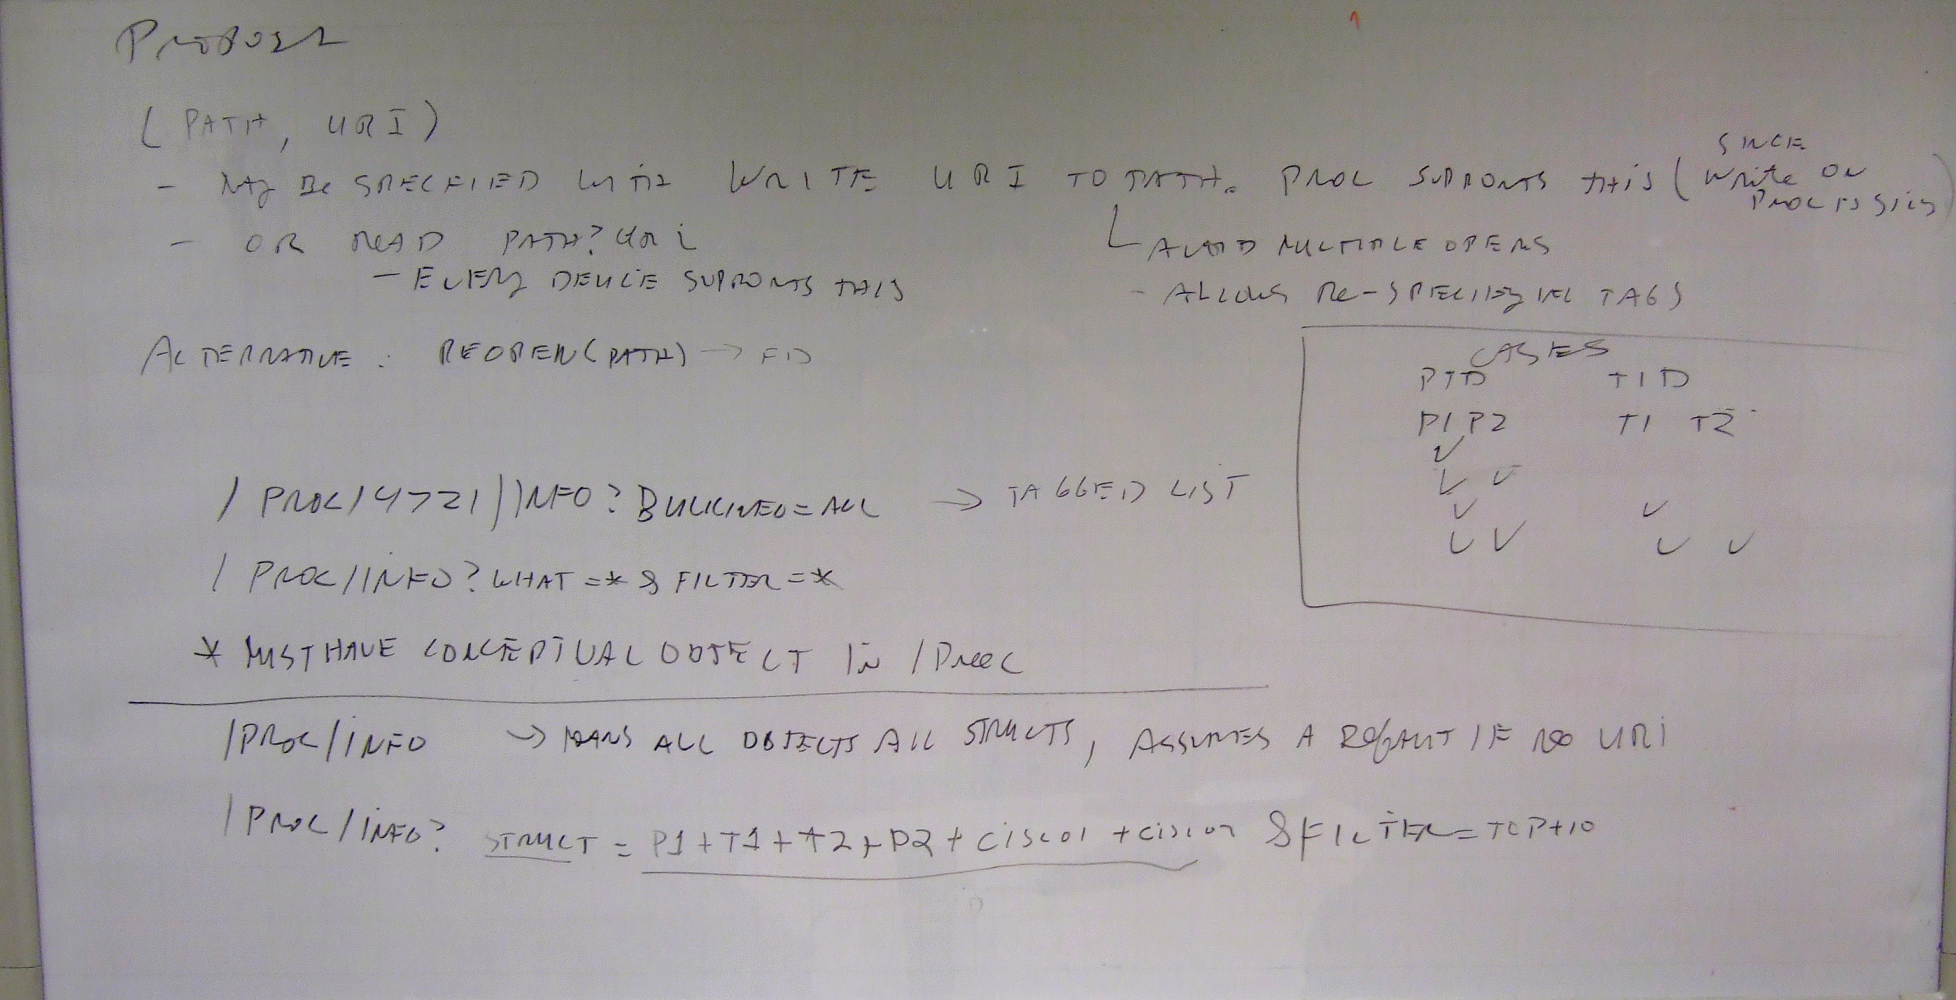 PROPOSAL
(PATH, URI)
- MAY BE SPECIFIED WITH WRITE URI TO PATH. PROC SUPPORTS THIS (SINCE Write ON
- OR READ PATH?URI
- EVERY DEVICE SUPPORTS THIS
AVOID MULTIPLE OPENS
- ALLOWS RE-SPECIFYING TAGS
ALTERNATIVE: REOPEN(PATH) → FD
CASES
PID TID
P1 P2 T1 T2
✓
✓ ✓
✓ ✓
✓ ✓ ✓ ✓
/PROC/4721/INFO?BULKINFO=ALL → TAGGED LIST
/PROC/INFO?WHAT=*&FILTER=*
* MUST HAVE CONCEPTUAL OBJECT IN /PROC
/PROC/INFO → MEANS ALL OBJECTS ALL STRUCTS, ASSUMES A DEFAULT IF NO URI
/PROC/INFO? STRUCT = P1+T1+T2+P2+CISCO1+CISCO2 &FILTER=TOP+10